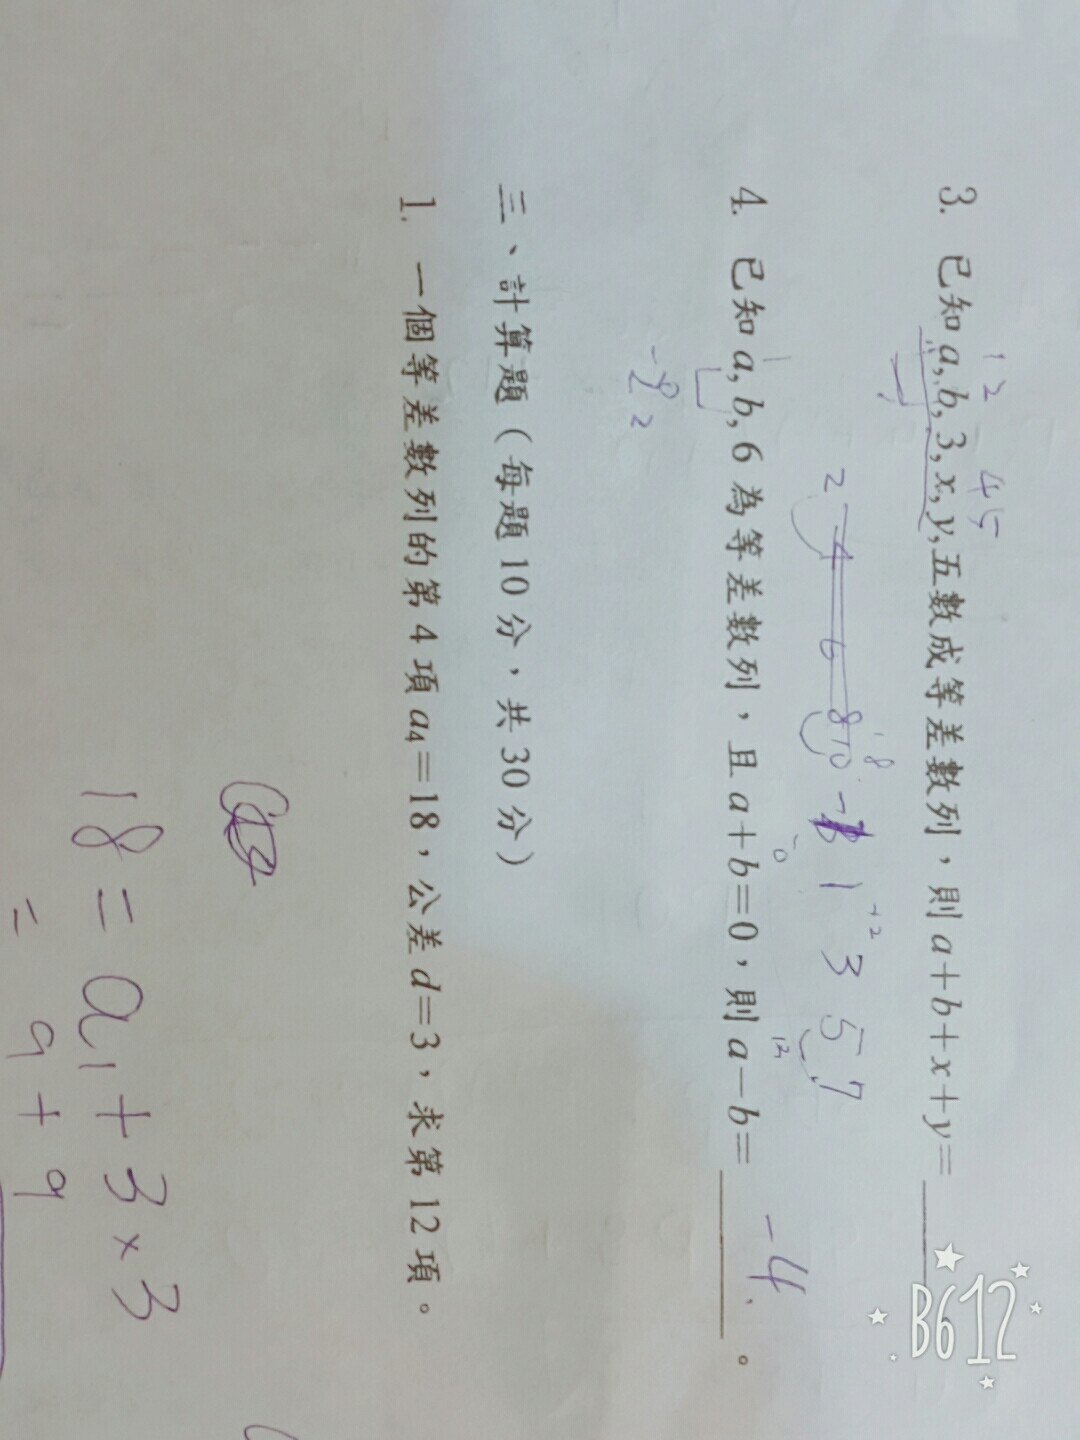 1 2 4 5
3. 已知 a, b, 3, x, y, 五數成等差數列，則 a+b+x+y=
2 4 6 8 10 1 3 5 7
4. 已知 a, b, 6 為等差數列，且 a+b=0，則 a-b= -4 。
-2 2
三、計算題（每題 10 分，共 30 分）
1. 一個等差數列的第 4 項 a4=18，公差 d=3，求第 12 項。
18 = a1 + 3 × 3
= 9 + 9
B612